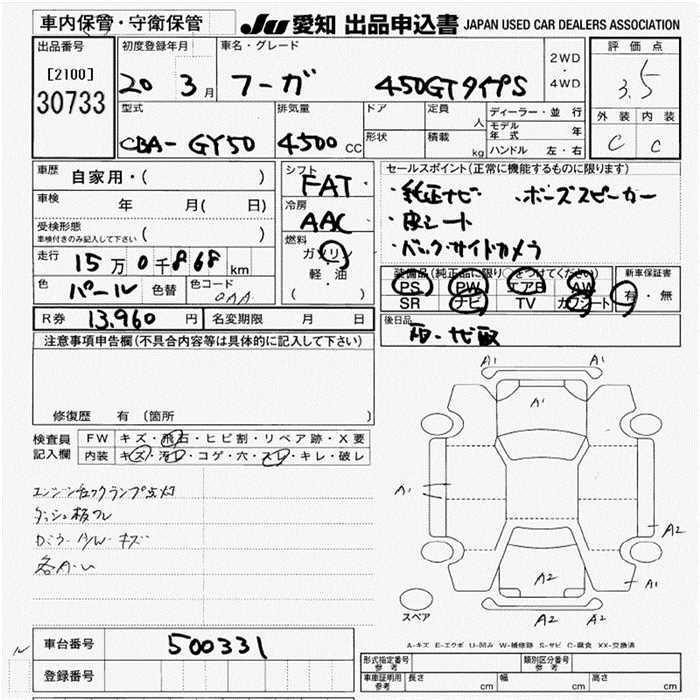 車内保管・守衛保管
JU 愛知 出品申込書 JAPAN USED CAR DEALERS ASSOCIATION
出品番号
[2100]
30733
初度登録年月
20 3月
車名・グレード
フーガ 450GTタイプS
2WD
・
4WD
評価点
3.5
外装 内装
C C
型式
CBA- GY50
排気量
4500 CC
ドア
形状
定員 人
積載 kg
ディーラー・並行
モデル年式 年
ハンドル 左・右
車歴
自家用・( )
車検 年 月( 日)
受検形態
車検付きのみ記入して下さい ( )
走行 15万0千868 km
色 パール 色替
色コード
シフト
FAT
冷房
AAC
燃料
ガソリン
・
軽・油
( )
セールスポイント(正常に機能するものに限ります)
・純正ナビ ・ボーズスピーカー
・皮シート
・バック・サイドカメラ
装備品(純正品に限り○をつけてください)
PS PW エアB AW
SR ナビ TV カワシート
新車保証書
有・無
後日品
R券 13,960 円 名変期限 月 日
注意事項申告欄(不具合内容等は具体的に記入して下さい)
修復歴 有 (箇所 )
検査員
記入欄
FW キズ・飛石・ヒビ割・リペア跡・X要
内装 キズ・汚れ・コゲ・穴・スレ・キレ・破レ
エンジンチェックランプ点灯
ダッシュ板ワレ
A1
A1
A1
A1
A2
A2
A1
A2
A2
スペア
A-キズ E-エクボ U-凹み W-補修跡 S-サビ C-腐食 XX-交換済
車台番号 500331
登録番号
形式指定番号
参考
類別区分番号
参考
車庫証明用
参考
長さ cm 幅 cm 高さ cm